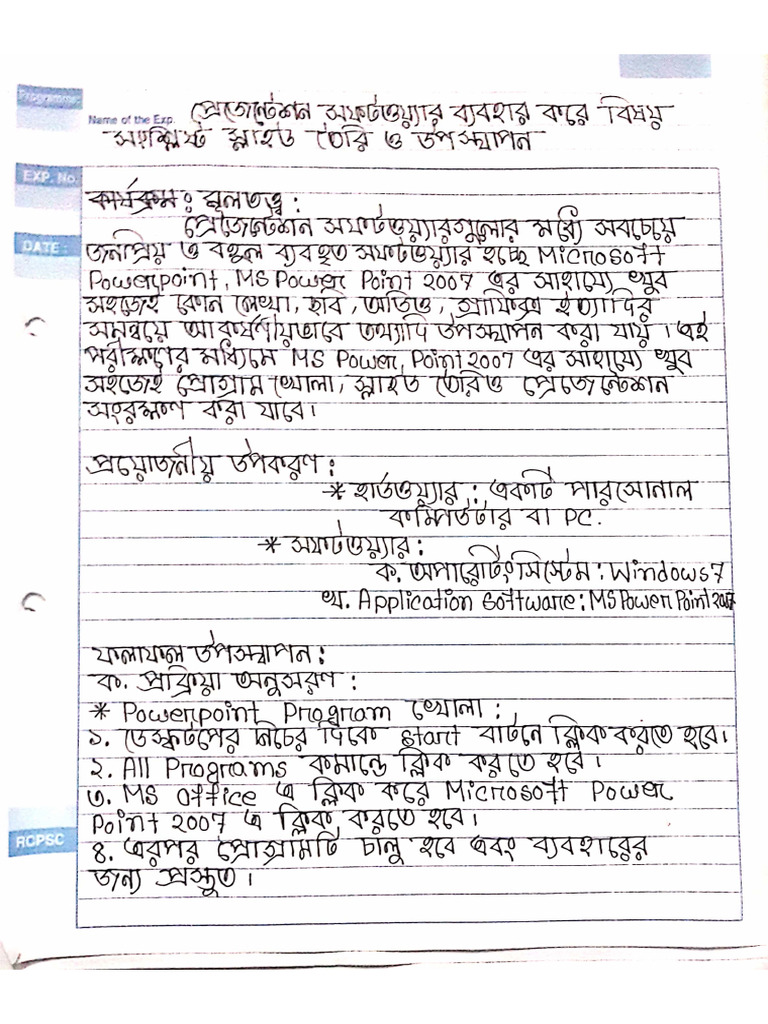 Programme
Name of the Exp. প্রেজেন্টেশন সফটওয়্যার ব্যবহার করে বিষয়
সংশ্লিষ্ট স্লাইড তৈরি ও উপস্থাপন
EXP. No.
কার্যক্রম: মূলতত্ত্ব:
প্রেজেন্টেশন সফটওয়্যারগুলোর মধ্যে সবচেয়ে
DATE:
জনপ্রিয় ও বহুল ব্যবহৃত সফটওয়্যার হচ্ছে Microsoft
Powerpoint, MS Power Point 2007 এর সাহায্যে খুব
সহজেই কোন লেখা, ছবি, অডিও, গ্রাফিক্স ইত্যাদির
সমন্বয়ে আকর্ষণীয়ভাবে তথ্যাদি উপস্থাপন করা যায়। এই
পরীক্ষণের মাধ্যমে MS Power, Point 2007 এর সাহায্যে খুব
সহজেই প্রোগ্রাম খোলা, স্লাইড তৈরিও প্রেজেন্টেশন
সংরক্ষণ করা যাবে।
প্রয়োজনীয় উপকরণ:
→* হার্ডওয়্যার: একটি পারসোনাল
কম্পিউটার বা PC.
→* সফটওয়্যার:
ক. অপারেটিংসিস্টেম: Windows7
খ. Application Software: MS Power Point 2007
ফলাফল উপস্থাপন:
ক. প্রক্রিয়া অনুসরণ:
* Powerpoint Program খোলা:
১. ডেস্কটপের নিচের দিকে start বাটনে ক্লিক করতে হবে।
২. All Programs কমান্ডে ক্লিক করতে হবে।
৩. MS Office এ ক্লিক করে Microsoft Power
Point 2007 এ ক্লিক করতে হবে।
RCPSC
৪. এরপর প্রোগ্রামটি চালু হবে এবং ব্যবহারের
জন্য প্রস্তুত।